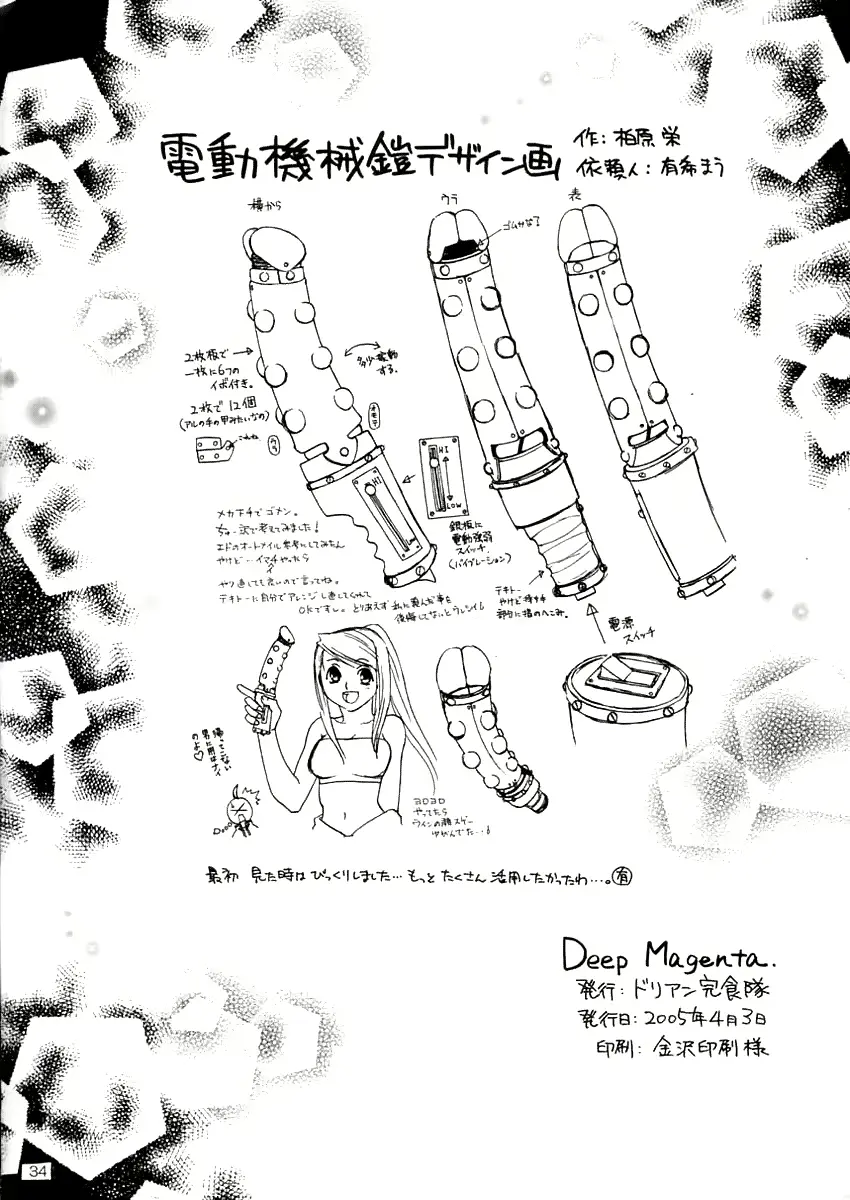 電動機械鎧デザイン画
作：柏原 栄
依頼人：有希まう
横から
ウラ
表
ゴムかな？
2枚板で
一枚に6つの
イボ付き。
2枚で12個
(アルの手の甲みたいなの)
これね
多少振動
する。
オモテ
ウラ
HI
LOW
HI
LOW
鉄板に
電動強弱
スイッチ
(バイブレーション)
メカ下手でゴメン。
ちゅー訳で考えてみました！
エドのオートメイル参考にしてみたん
やけど…イマイチやったら
やり直しても良いので言ってね。
テキトーに自分でアレンジし直してくれて
OKですし。とりあえず私に頼んだ事を
後悔してないとウレシイ
テキトー
やけど持ち手
部分に指のへこみ。
電源
スイッチ
帰ってこない
男に用はナイ
のよ♡
ヨロヨロ
やってたら
ラインの顔スゲー
ゆがんでた…
最初 見た時は びっくりしました… もっと たくさん 活用したかったわ…。有
Deep Magenta.
発行：ドリアン完食隊
発行日：2005年4月3日
印刷：金沢印刷様
34